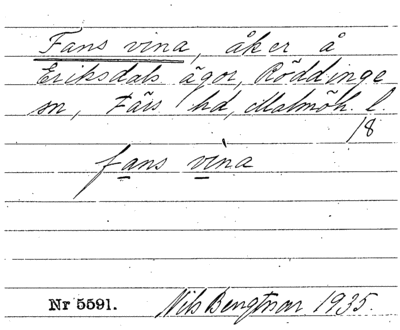 Fans vina, åker å
Eriksdals ägor, Röddinge
sn, Färs hd, Malmöh. l.
/8
fans vina
Nr 5591.
Nils Bengtsson 1935.